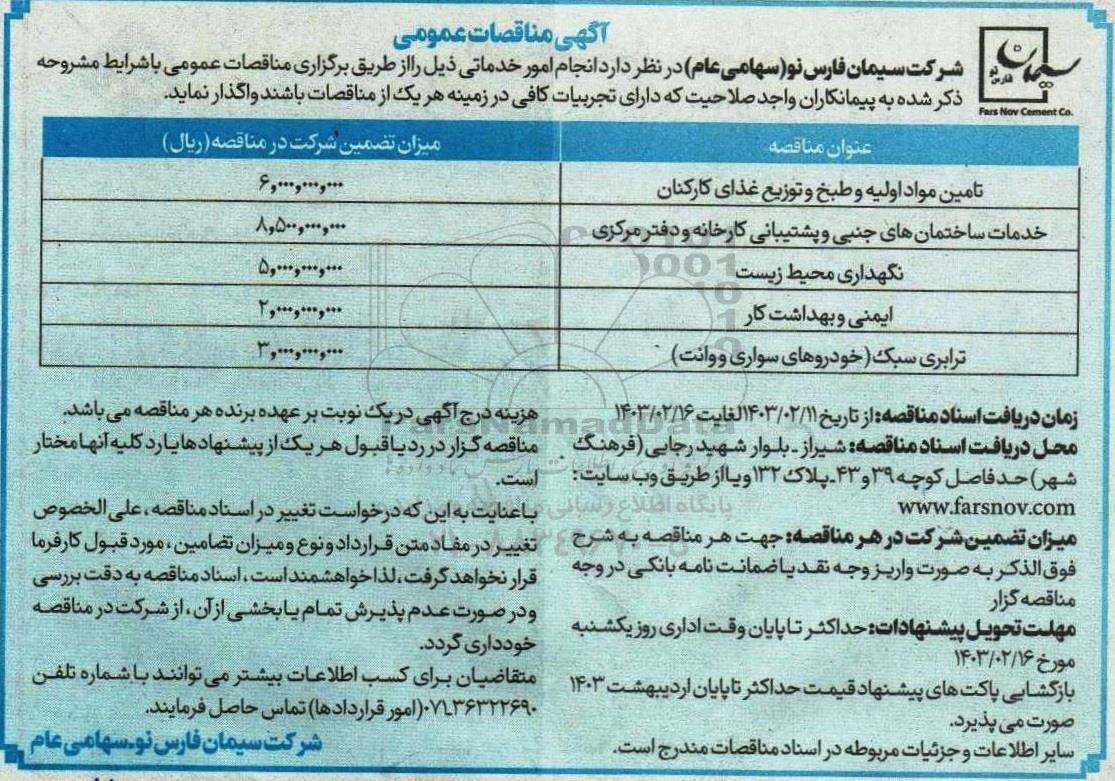 آگهی مناقصات عمومی
سیمان فارس نو
Fars Nov Cement Co.
شرکت سیمان فارس نو(سهامی عام) در نظر دارد انجام امور خدماتی ذیل را از طریق برگزاری مناقصات عمومی با شرایط مشروحه
ذکر شده به پیمانکاران واجد صلاحیت که دارای تجربیات کافی در زمینه هر یک از مناقصات باشند واگذار نماید.
عنوان مناقصه	میزان تضمین شرکت در مناقصه(ریال)
تامین مواد اولیه و طبخ و توزیع غذای کارکنان	۶,۰۰۰,۰۰۰,۰۰۰
خدمات ساختمان های جنبی و پشتیبانی کارخانه و دفتر مرکزی	۸,۵۰۰,۰۰۰,۰۰۰
نگهداری محیط زیست	۵,۰۰۰,۰۰۰,۰۰۰
ایمنی و بهداشت کار	۲,۰۰۰,۰۰۰,۰۰۰
ترابری سبک (خودروهای سواری و وانت)	۳,۰۰۰,۰۰۰,۰۰۰
زمان دریافت اسناد مناقصه: از تاریخ ۱۴۰۳/۰۲/۱۱ لغایت ۱۴۰۳/۰۲/۱۶
محل دریافت اسناد مناقصه: شیراز ـ بلوار شهید رجایی (فرهنگ
شهر) حد فاصل کوچه ۳۹ و ۴۳ـ پلاک ۱۳۲ و یا از طریق وب سایت :
www.farsnov.com
میزان تضمین شرکت در هر مناقصه: جهت هر مناقصه به شرح
فوق الذکر به صورت واریز وجه نقد یا ضمانت نامه بانکی در وجه
مناقصه گزار
مهلت تحویل پیشنهادات: حداکثر تا پایان وقت اداری روز یکشنبه
مورخ ۱۴۰۳/۰۲/۱۶
بازگشایی پاکت های پیشنهاد قیمت حداکثر تا پایان اردیبهشت ۱۴۰۳
صورت می پذیرد.
سایر اطلاعات و جزئیات مربوطه در اسناد مناقصات مندرج است.
هزینه درج آگهی در یک نوبت بر عهده برنده هر مناقصه می باشد.
مناقصه گزار در رد یا قبول هر یک از پیشنهادها یا رد کلیه آنها مختار
است.
با عنایت به این که درخواست تغییر در اسناد مناقصه ، علی الخصوص
تغییر در مفاد متن قرارداد و نوع و میزان تضامین ، مورد قبول کارفرما
قرار نخواهد گرفت ، لذا خواهشمند است ، اسناد مناقصه به دقت بررسی
و در صورت عدم پذیرش تمام یا بخشی از آن ، از شرکت در مناقصه
خودداری گردد.
متقاضیان برای کسب اطلاعات بیشتر می توانند با شماره تلفن
۰۷۱ـ۳۶۳۲۲۶۹۰ (امور قراردادها) تماس حاصل فرمایند.
شرکت سیمان فارس نو ـ سهامی عام
ParsNamadData